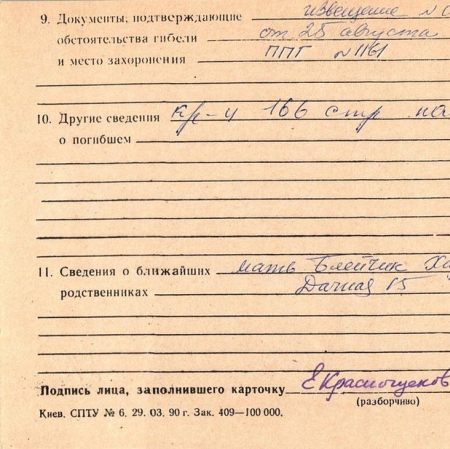 9. Документы, подтверждающие извещение №
обстоятельства гибели от 25 августа
и место захоронения ППГ №1161
10. Другие сведения кр-ц 166 стр
о погибшем
11. Сведения о ближайших мать Блейчик
родственниках Дачная 15
Подпись лица, заполнившего карточку
(разборчиво)
Киев. СПТУ № 6. 29. 03. 90 г. Зак. 409—100 000.